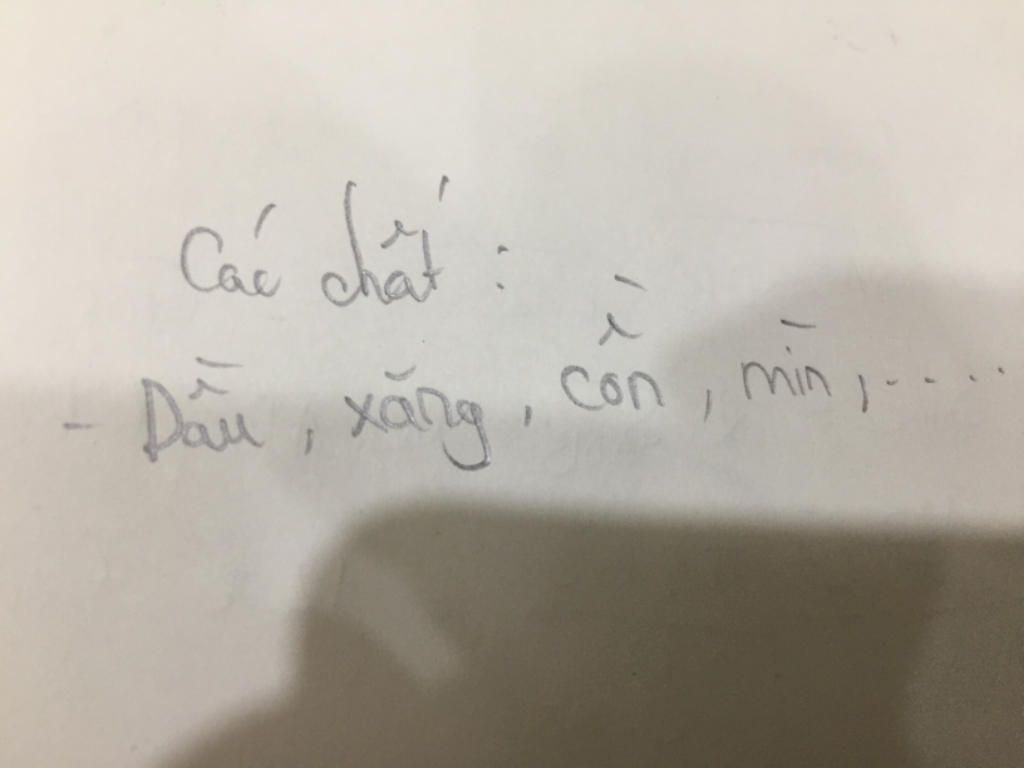 Các chất :
- Dầu, xăng, cồn, mìn,.....